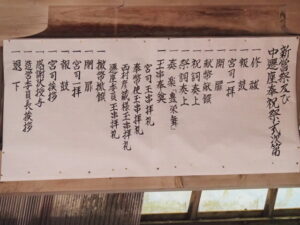 新嘗祭及び
中遷座奉祝祭式次第
一 修祓
一 報鼓
一 宮司一拝
一 開扉
一 献幣献饌
一 祝詞奏上
一 祭詞奏上
一 奏楽
一 玉串奉奠
宮司玉串拝礼
奉幣使玉串拝礼
玉串拝礼
一 撤幣撤饌
一 閉扉
一 宮司一拝
一 報鼓
一 宮司挨拶
一 感謝状授与
一 造営委員長挨拶
一 退下